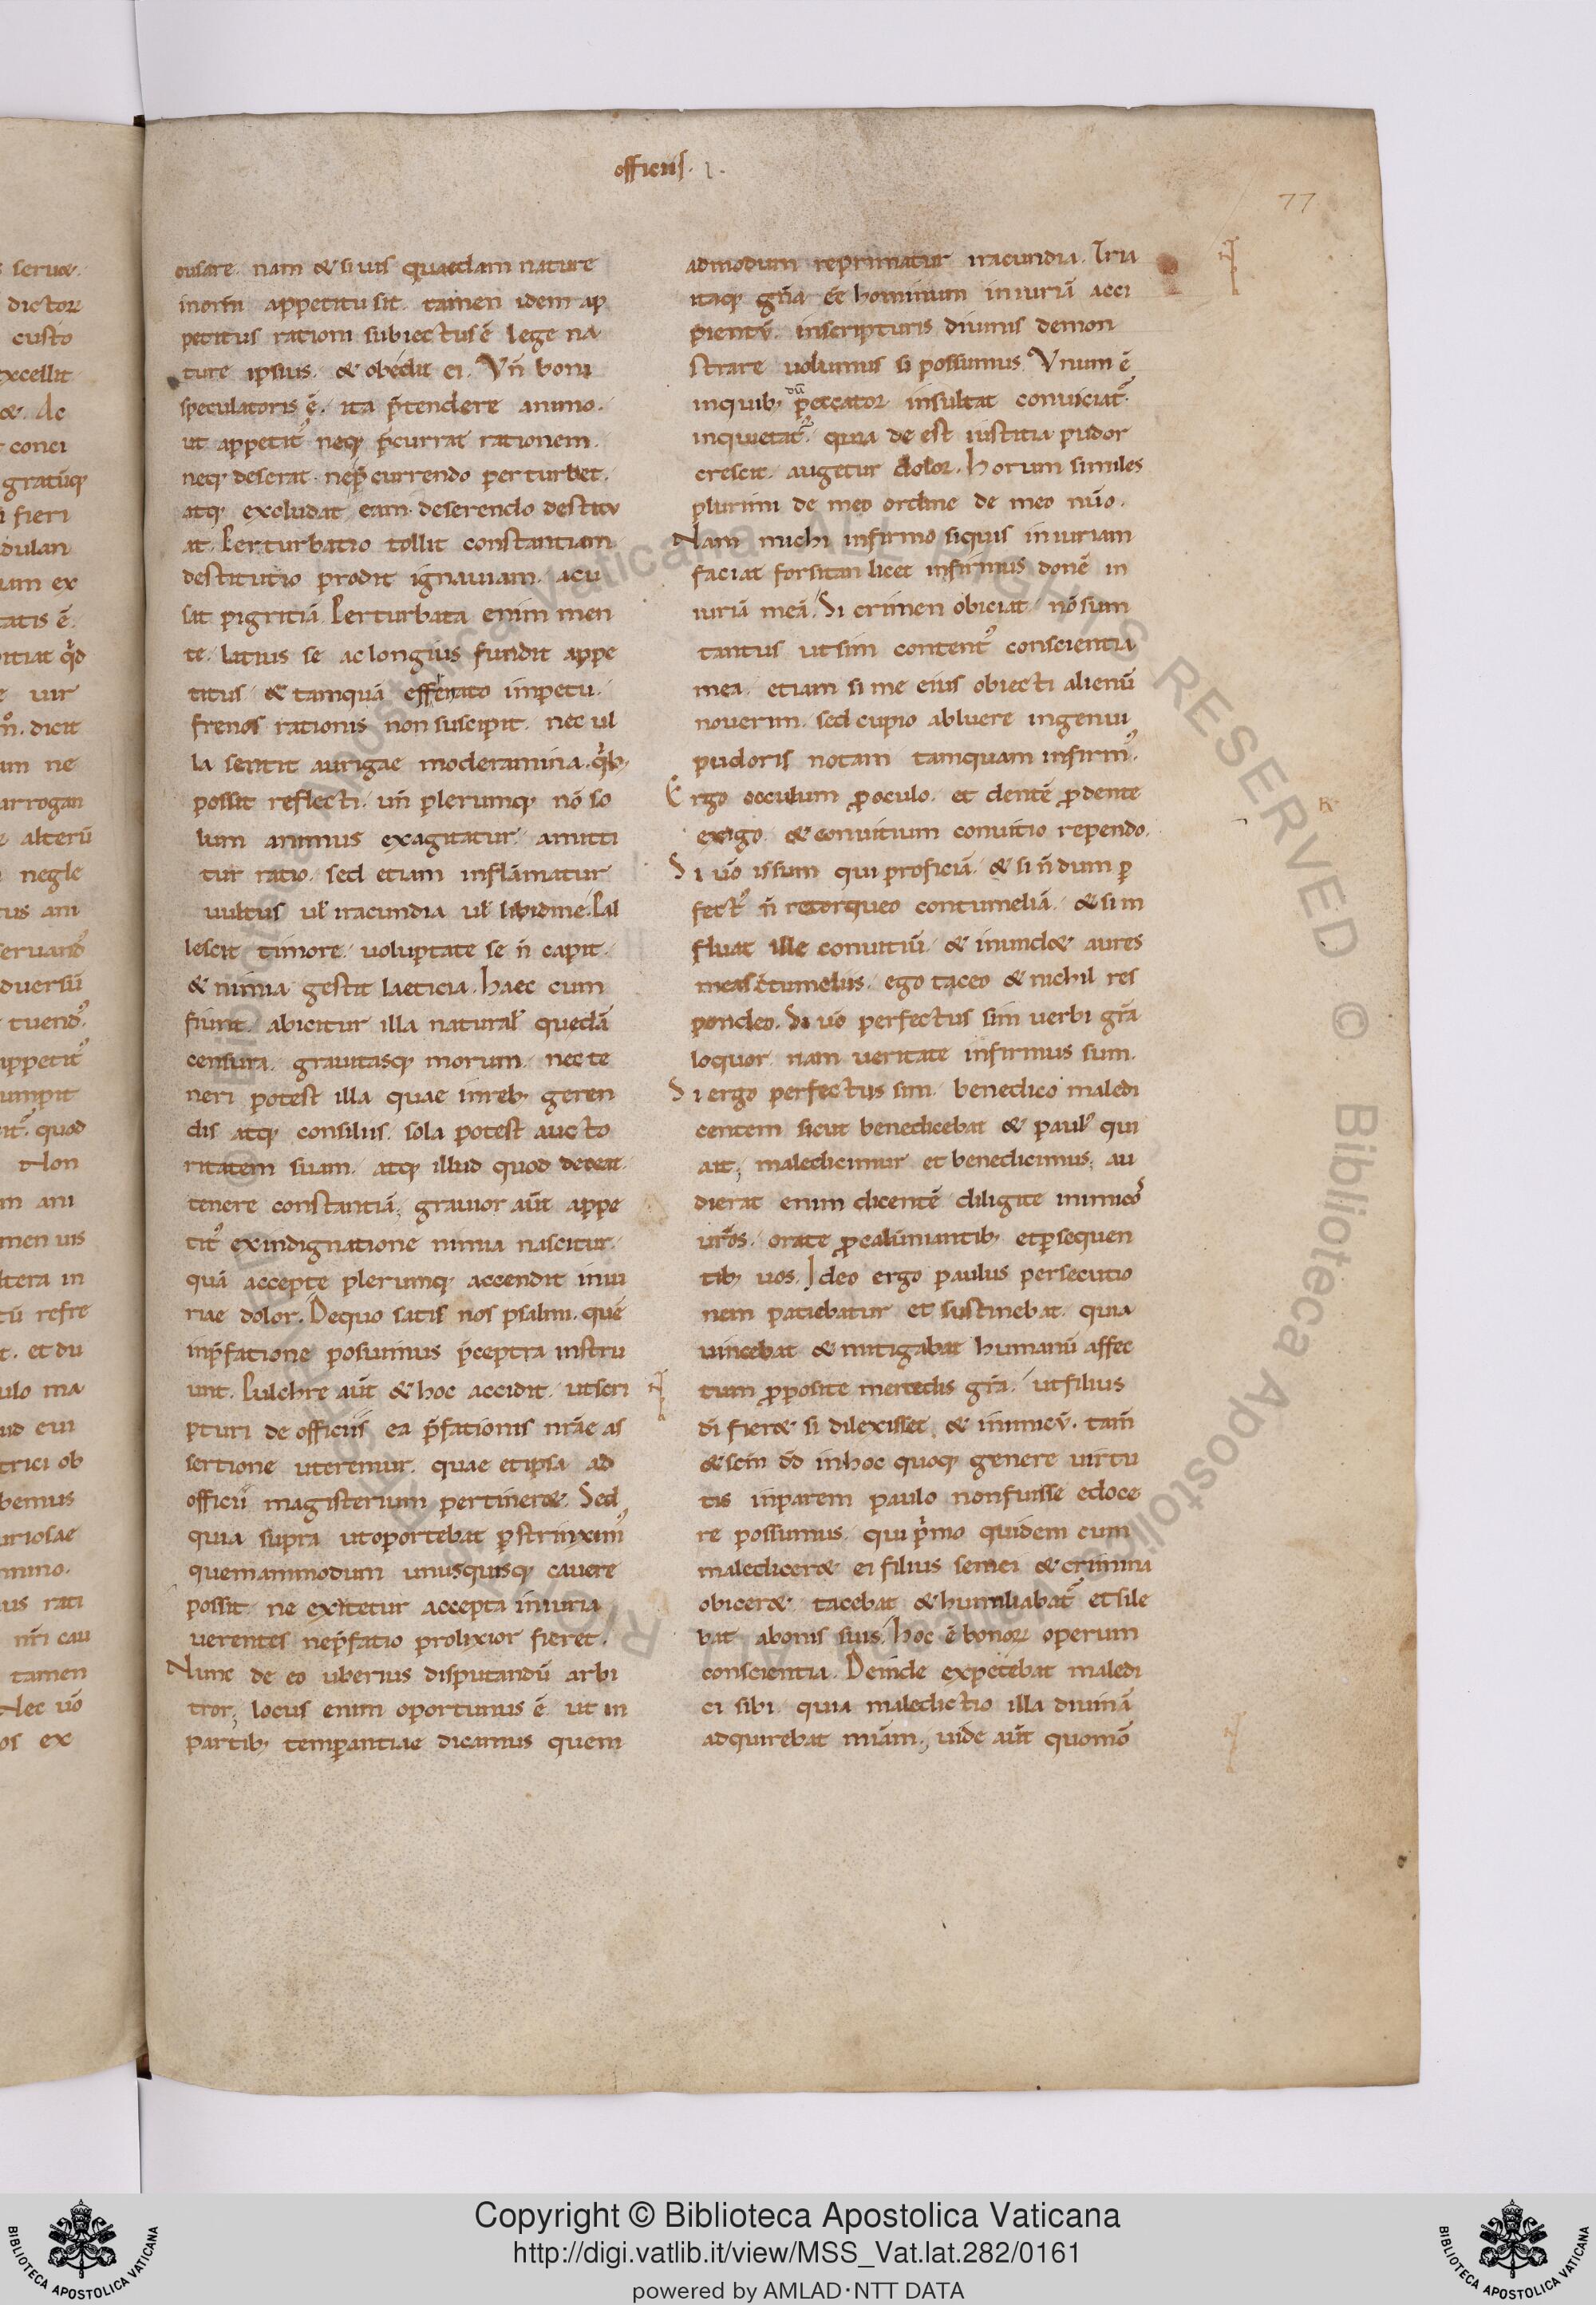 officiis. I.
77
cusare. nam & si uis quaedam nature
inom̄i appetitu sit. tamen idem ap
petitus rationi subiectus ē lege na
ture ipsius. & obedit ei. Vn̄ boni
speculatoris ē. ita p̄tendere animo.
ut appetit᾿ neq; p̄currat rationem.
neq; deserat. nep̄currendo perturbet.
atq; excludat eam. deserendo destitu
at. Perturbatio tollit constantiam
destitutio prodit ignauiam. acu
sat pigritiā. Perturbata enim men
te. latius se ac longius fundit appe
titus. & tamquā efferato inpetu.
frenos rationis non suscipit. nec ul
la sentit aurigae moderamina. q̇b;
possit reflecti. un̄ plerumq; nō so
lum animus exagitatur. amitti
tur ratio. sed etiam inflāmatur
uultus ul̄ iracundia ul̄ libidine. Pal
lescit timore. uoluptate se n̄ capit.
& nimia gestit laeticia. haec cum
fiunt. abicitur illa natural̄ quedā
censura. grauitasq; morum. nec te
neri potest illa quae inreb; geren
dis atq; consiliis. sola potest aucto
ritatem suam. atq; illud quod deceat.
tenere constantiā; grauior aūt appe
tit᾿ exindignatione nimia nascitur.
quā accepte plerumq; accendit iniu
riae dolor. Dequo satis nos psalmi. quē
inp̄fatione posuimus p̄cepta instru
unt. Pulchre aūt & hoc accidit. utscri
pturi de officiis ea p̄fationis nr̄ae as
sertione uteremur. quae etipsa ad
officii magisterium pertiner&. Sed
quia supra utoportebat p̄strinxim᾿
quemammodum unusquisq; cauere
possit. ne exitetur accepta iniuria
uerentes nep̄fatio prolixior fieret.
Nunc de eo uberius disputandū arbi
tror; locus enim oportunus ē ut in
partib; temperantiae dicamus quem
admodum reprimatur iracundia. Tria
itaq; gn̄a ēē hominum iniuriā acci
pientū. inscripturis diuinis demon
strare uolumus si possumus. Vnum ē
dū
inquib; peccator insultat conuiciat᾿.
inquietat᾿. quia de est iustitia pudor
crescit. augetur dolor. horum similes
plurimi de meo ordine de meo nūo.
Nam michi infirmo siquis iniuriam
faciat forsitan licet infirmus donē in
iuriā meā. Si crimen obiciat. nō sum
tantus utsim content᾿ conscientia
mea. etiam si me eius obiecti alienū
nouerim. sed cupio abluere ingenui
pudoris notam tamquam infirm᾿.
Ergo occulum p̱oculo. et dentē p̱dente
exigo. & conuitium conuitio rependo.
Si uō issum qui proficiā. & si n̄dum p
fect᾿ n̄ retorqueo contumeliā. & si in
fluat ille conuitiū. & inund& aures
meas c̄tumeliis. ego taceo & nichil res
pondeo. Si uō perfectus sim uerbi gr̄a
loquor. nam ueritate infirmus sum.
Si ergo perfectus sim. benedico maledi
centem sicut benedicebat & paul᾿ qui
ait; maledicimur et benedicimus; au
dierat enim dicentē diligite inimicos
ur̄os. orate p̱calūniantib; etp̱sequen
tib; uos. Ideo ergo paulus persecutio
nem patiebatur et sustinebat. quia
uincebat & mitigabat humanū affec
tum p̱posite mercedis gr̄a. utfilius
dī fier& si dilexisset & inimicū. tam̄
& scm̄ dd̄ inhoc quoq; genere uirtu
tis inparem paulo nonfuisse edoce
re possumus. qui p̄mo quidem cum
maledicer& ei filius semei & crimina
obicer&. tacebat & humiliabat᾿ etsile
bat abonis suis. hoc ē bonor̄ operum
conscientia. Deinde expetebat maledi
ci sibi. quia maledictio illa diuinā
adquirebat mīam; uide aūt quomō
Copyright © Biblioteca Apostolica Vaticana
http://digi.vatlib.it/view/MSS_Vat.lat.282/0161
powered by AMLAD·NTT DATA
BIBLIOTECA APOSTOLICA VATICANA
BIBLIOTECA APOSTOLICA VATICANA